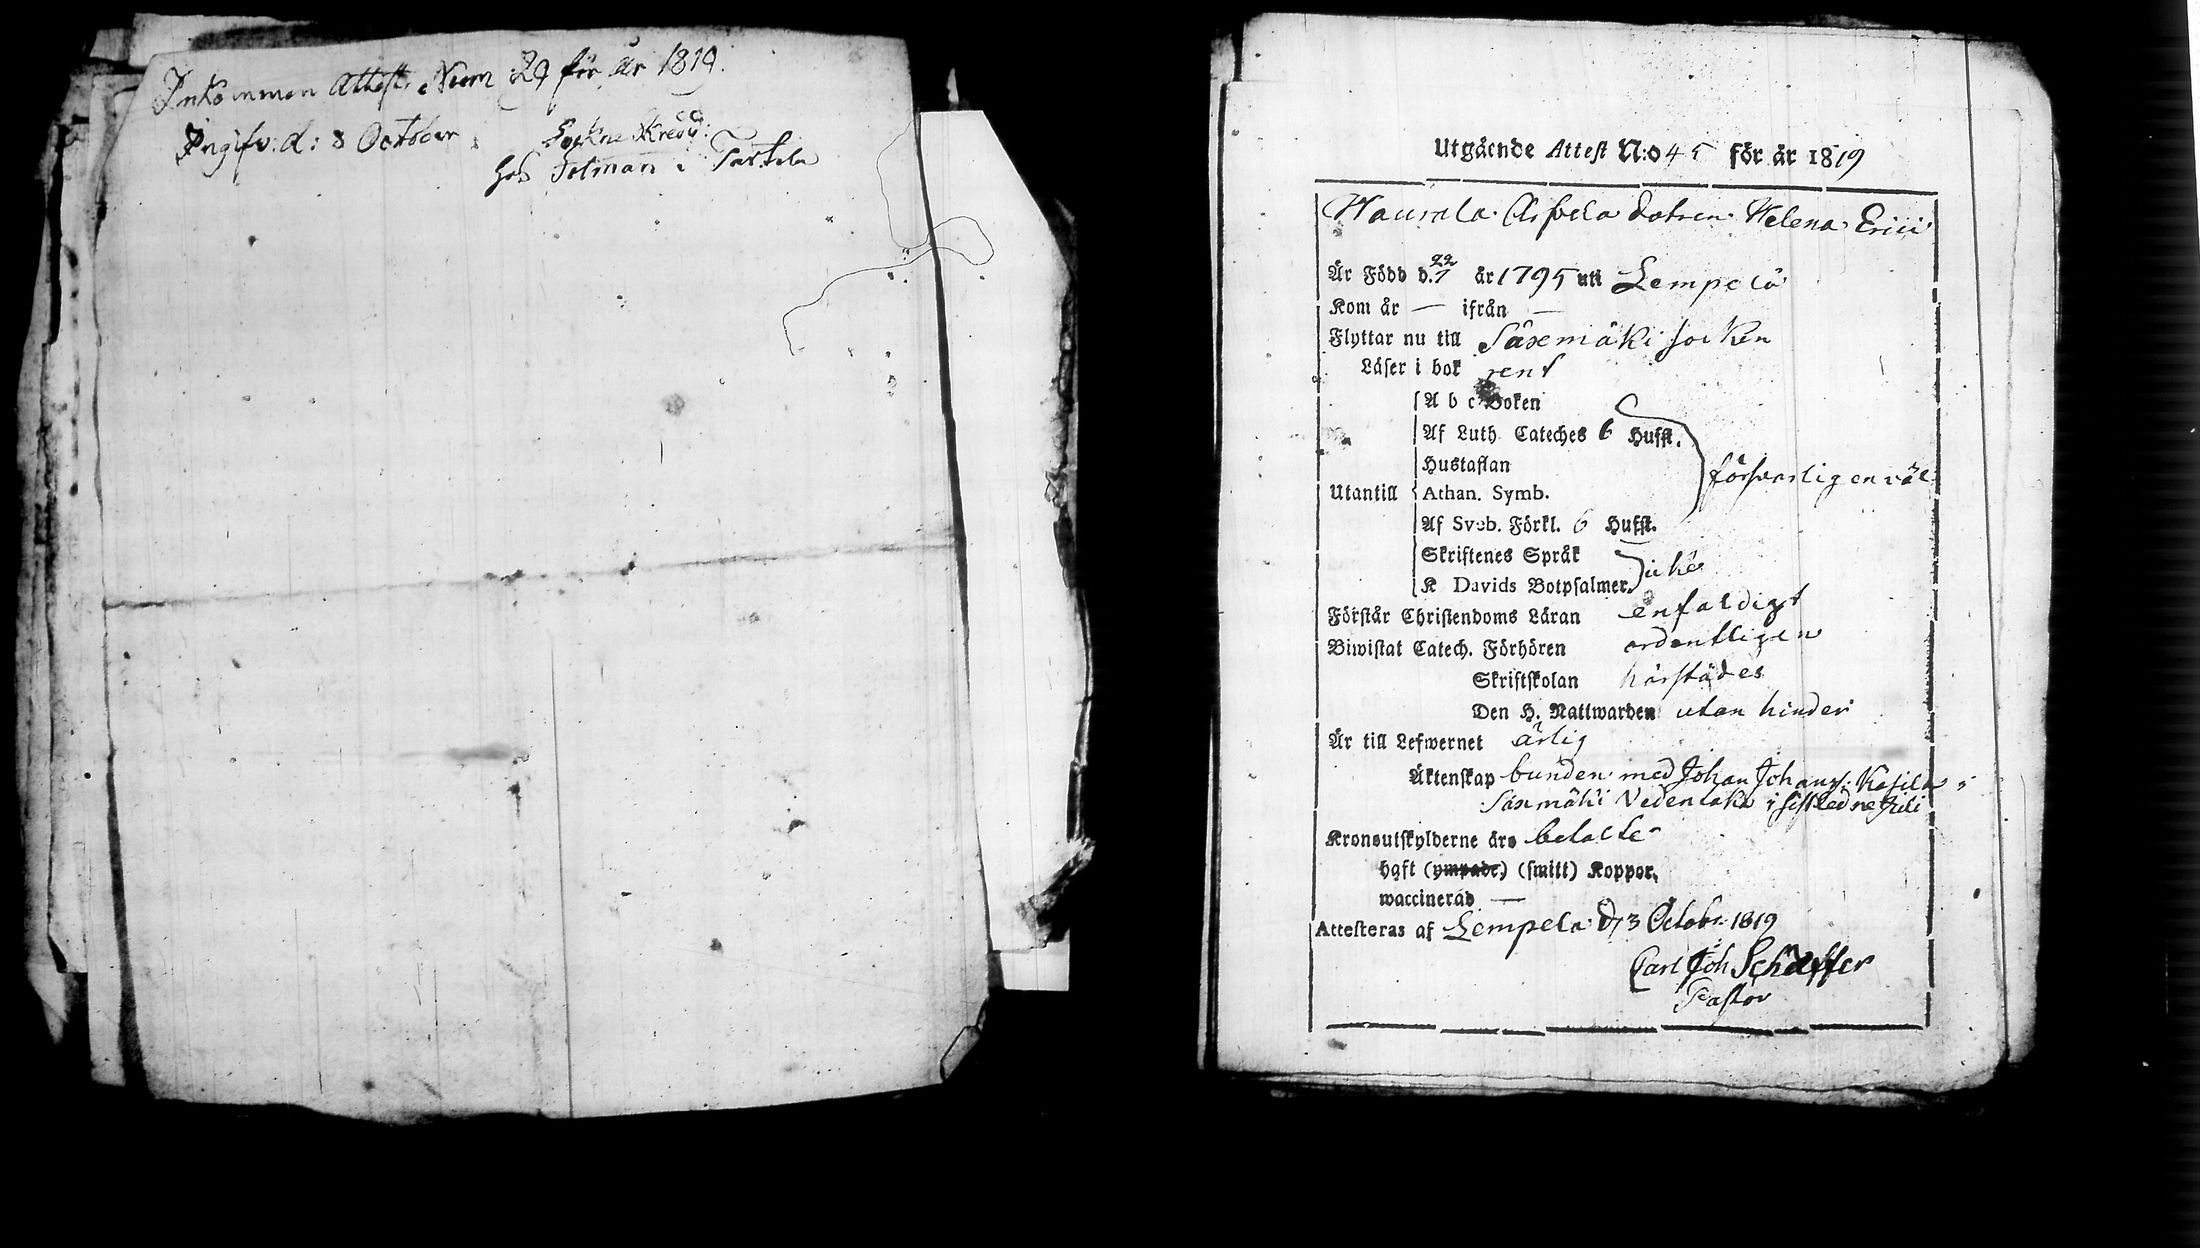 Inkommen Attest Num 29 för år 1819.
Ingifv: d: 8 October
Sockne Skredd:
hos Tolman i Tarttila
Utgående Attest N:o 45 för år 1819
Maurala Arfvela dotren Helena Erici
Är Född d. 22/7 år 1795 uti Lempelä
Kom år — ifrån —
Flyttar nu till Säxmäki socken
Läser i bok rent
A b c Boken
Af Luth. Cateches 6 Hufst.
Hustaflan
försvarligen väl
Utantill Athan. Symb.
Af Sveb. Förkl. 6 Hufst.
Skriftenes Språk
K Davids Botpsalmer.
Förstår Christendoms Läran enfaldigt
Biwistat Catech. Förhören ordentligen
Skriftskolan härstädes
Den H. Nattwarden utan hinder
Är till Lefwernet ärlig
Äktenskap bunden med Johan Johanss:
Säxmäki i
Kronoutskylderne äro betalte
haft (ympade) (smitt) Koppor.
waccinerad —
Attesteras af Lempela d 3 Octobr 1819
Carl Joh Schæffer
Pastor